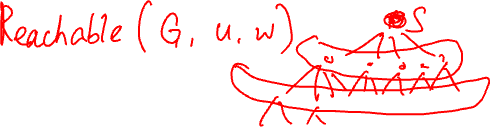 Reachable (G, u, w)
S